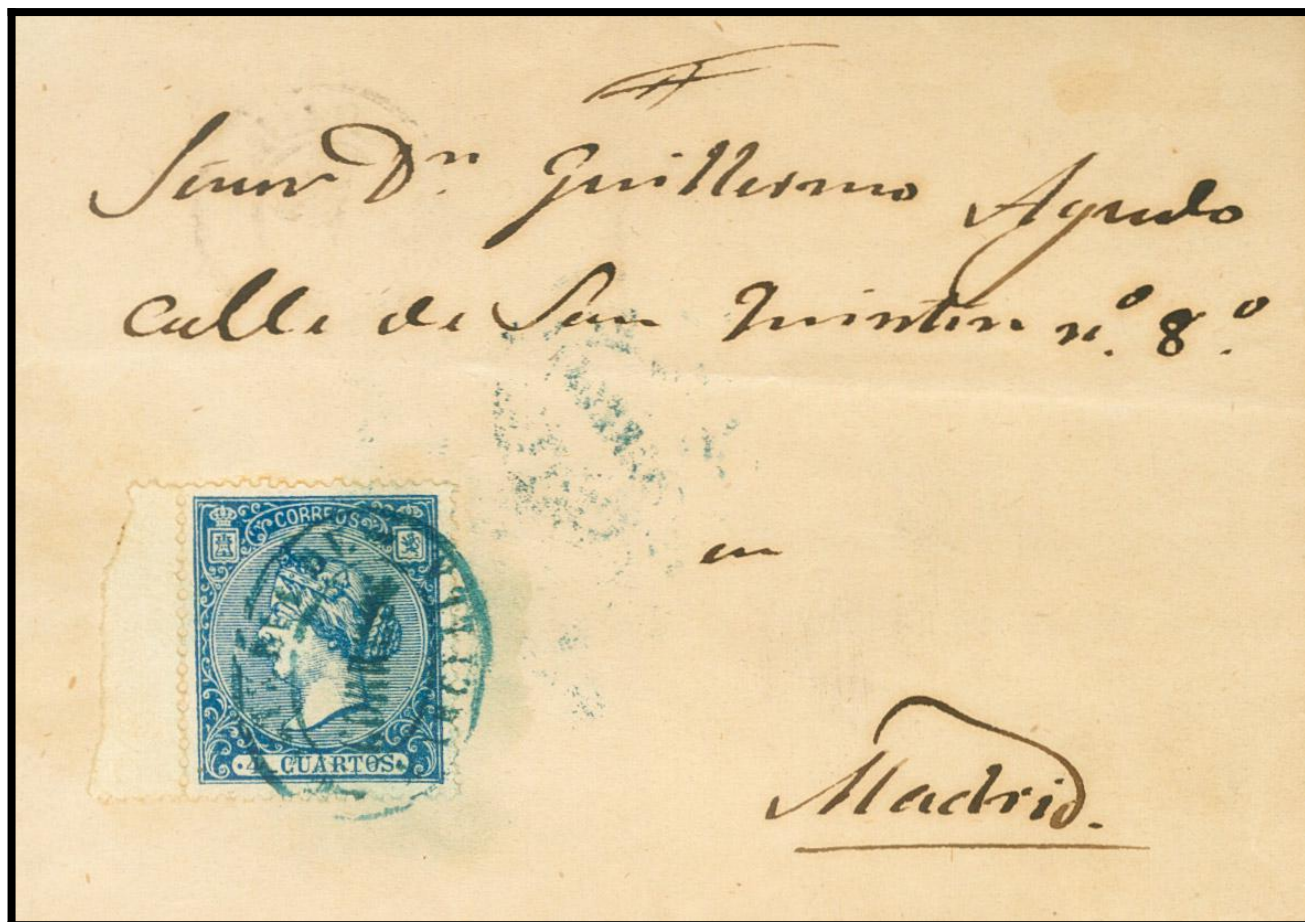 Señor Dⁿ Guillermo Agudo
calle de San Quintin nº. 8.º
en
Madrid.
CORREOS
4 CUARTOS